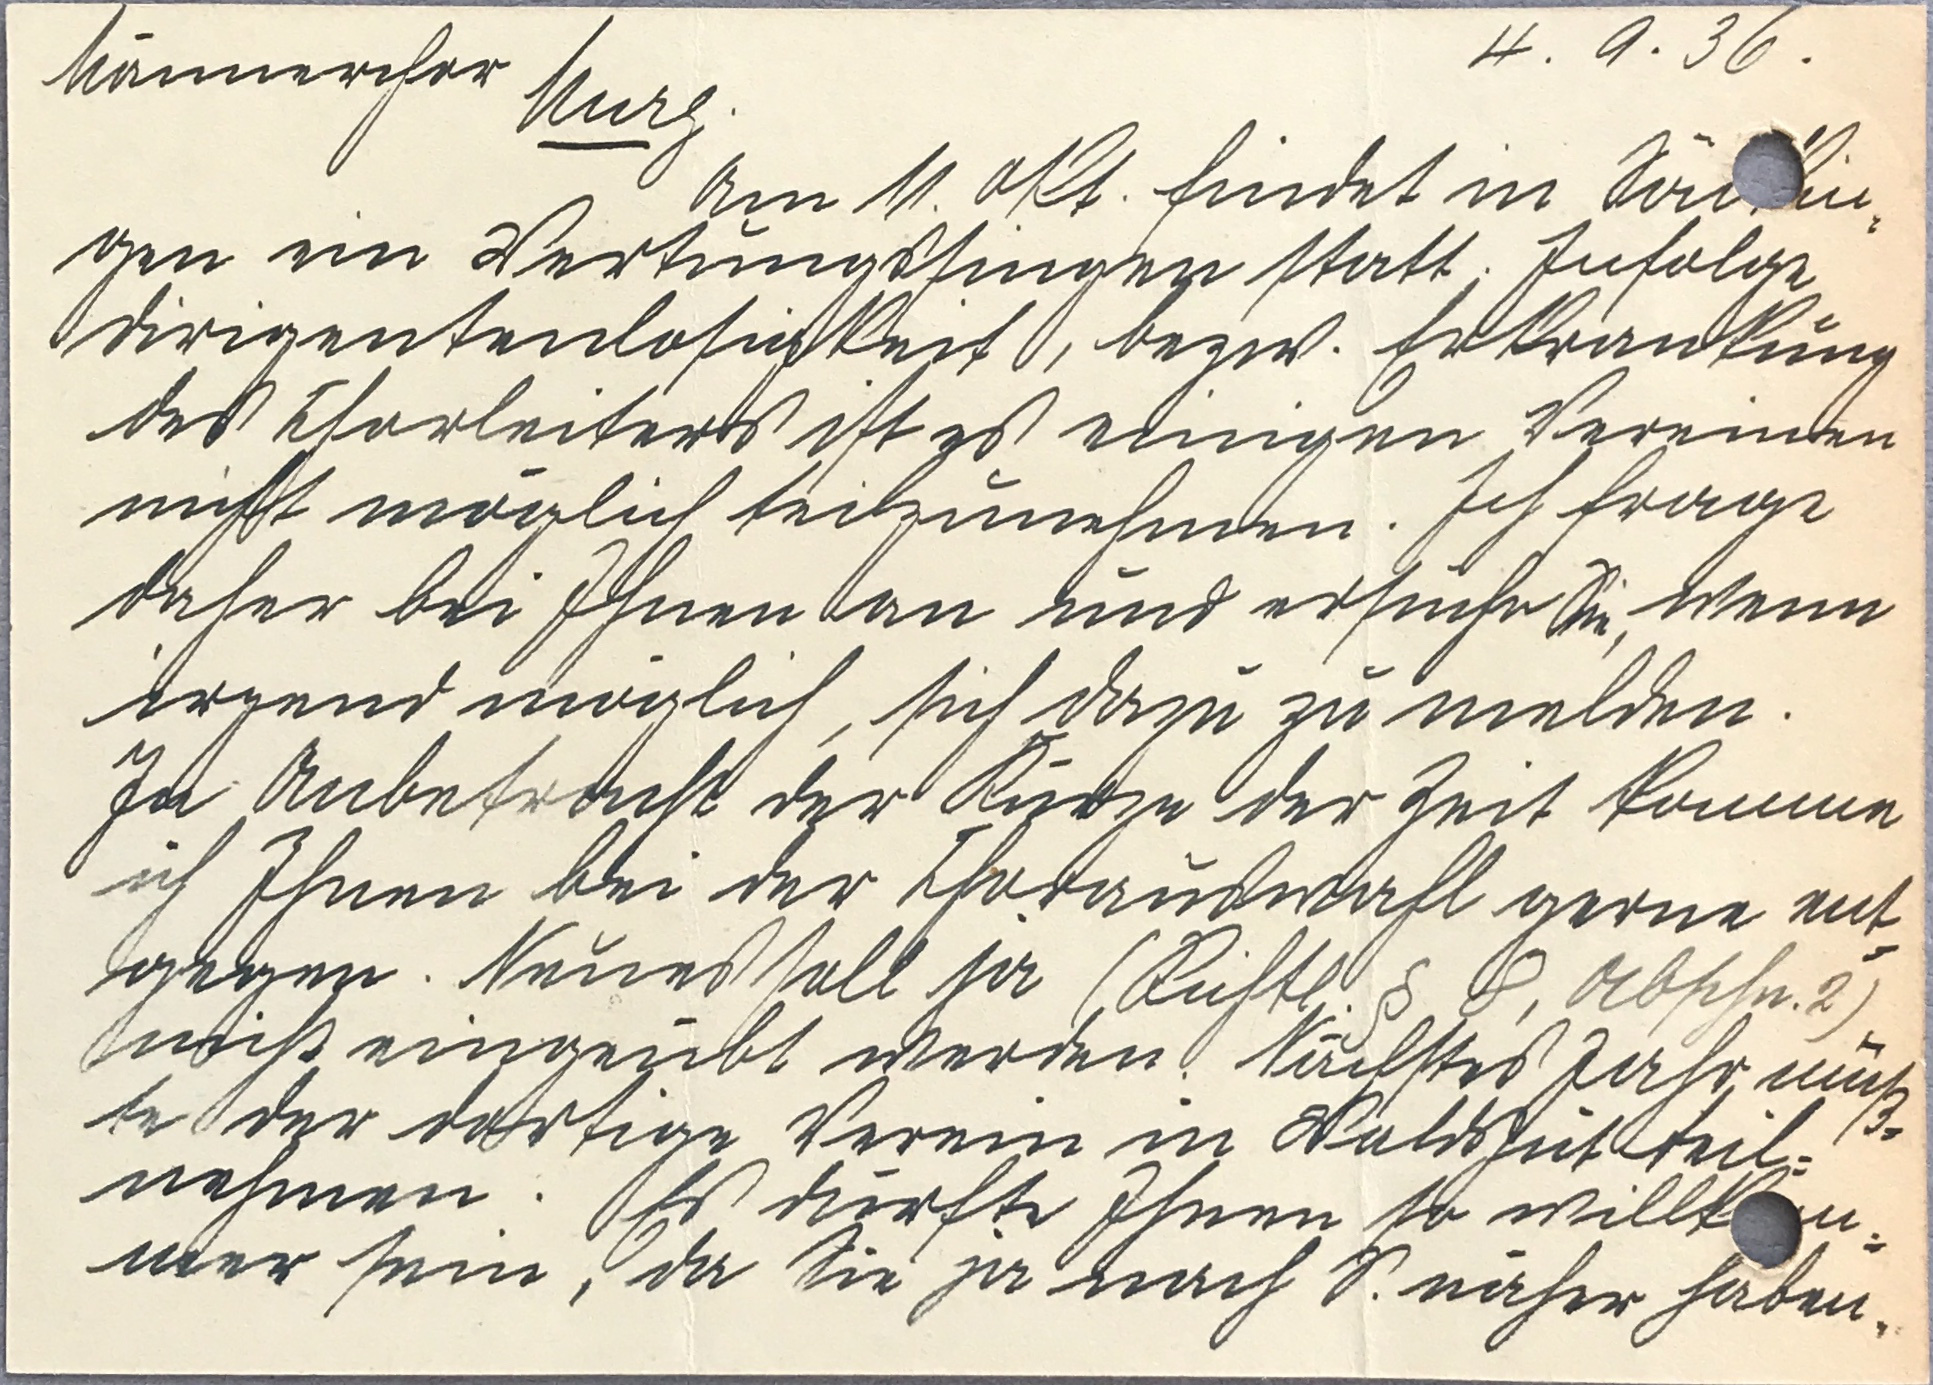 Männerchor Murg.
4. 9. 36.
Am 11. Okt. findet in Säckin-
gen ein Wertungssingen statt. Infolge
Dirigentenlosigkeit, bezw. Erkrankung
des Chorleiters ist es einigen Vereinen
nicht möglich teilzunehmen. Ich frage
daher bei Ihnen an und ersuche Sie, wenn
irgend möglich, sich dazu zu melden.
In Anbetracht der Kürze der Zeit komme
ich Ihnen bei der Chorauswahl gerne ent-
gegen. Neues soll ja (Richtl. § 8, Abschn. 2)
nicht eingeübt werden. Nächstes Jahr müß-
te der dortige Verein in Waldshut teil-
nehmen. Es dürfte Ihnen so willkom-
mer sein, da Sie ja nach S. näher haben.